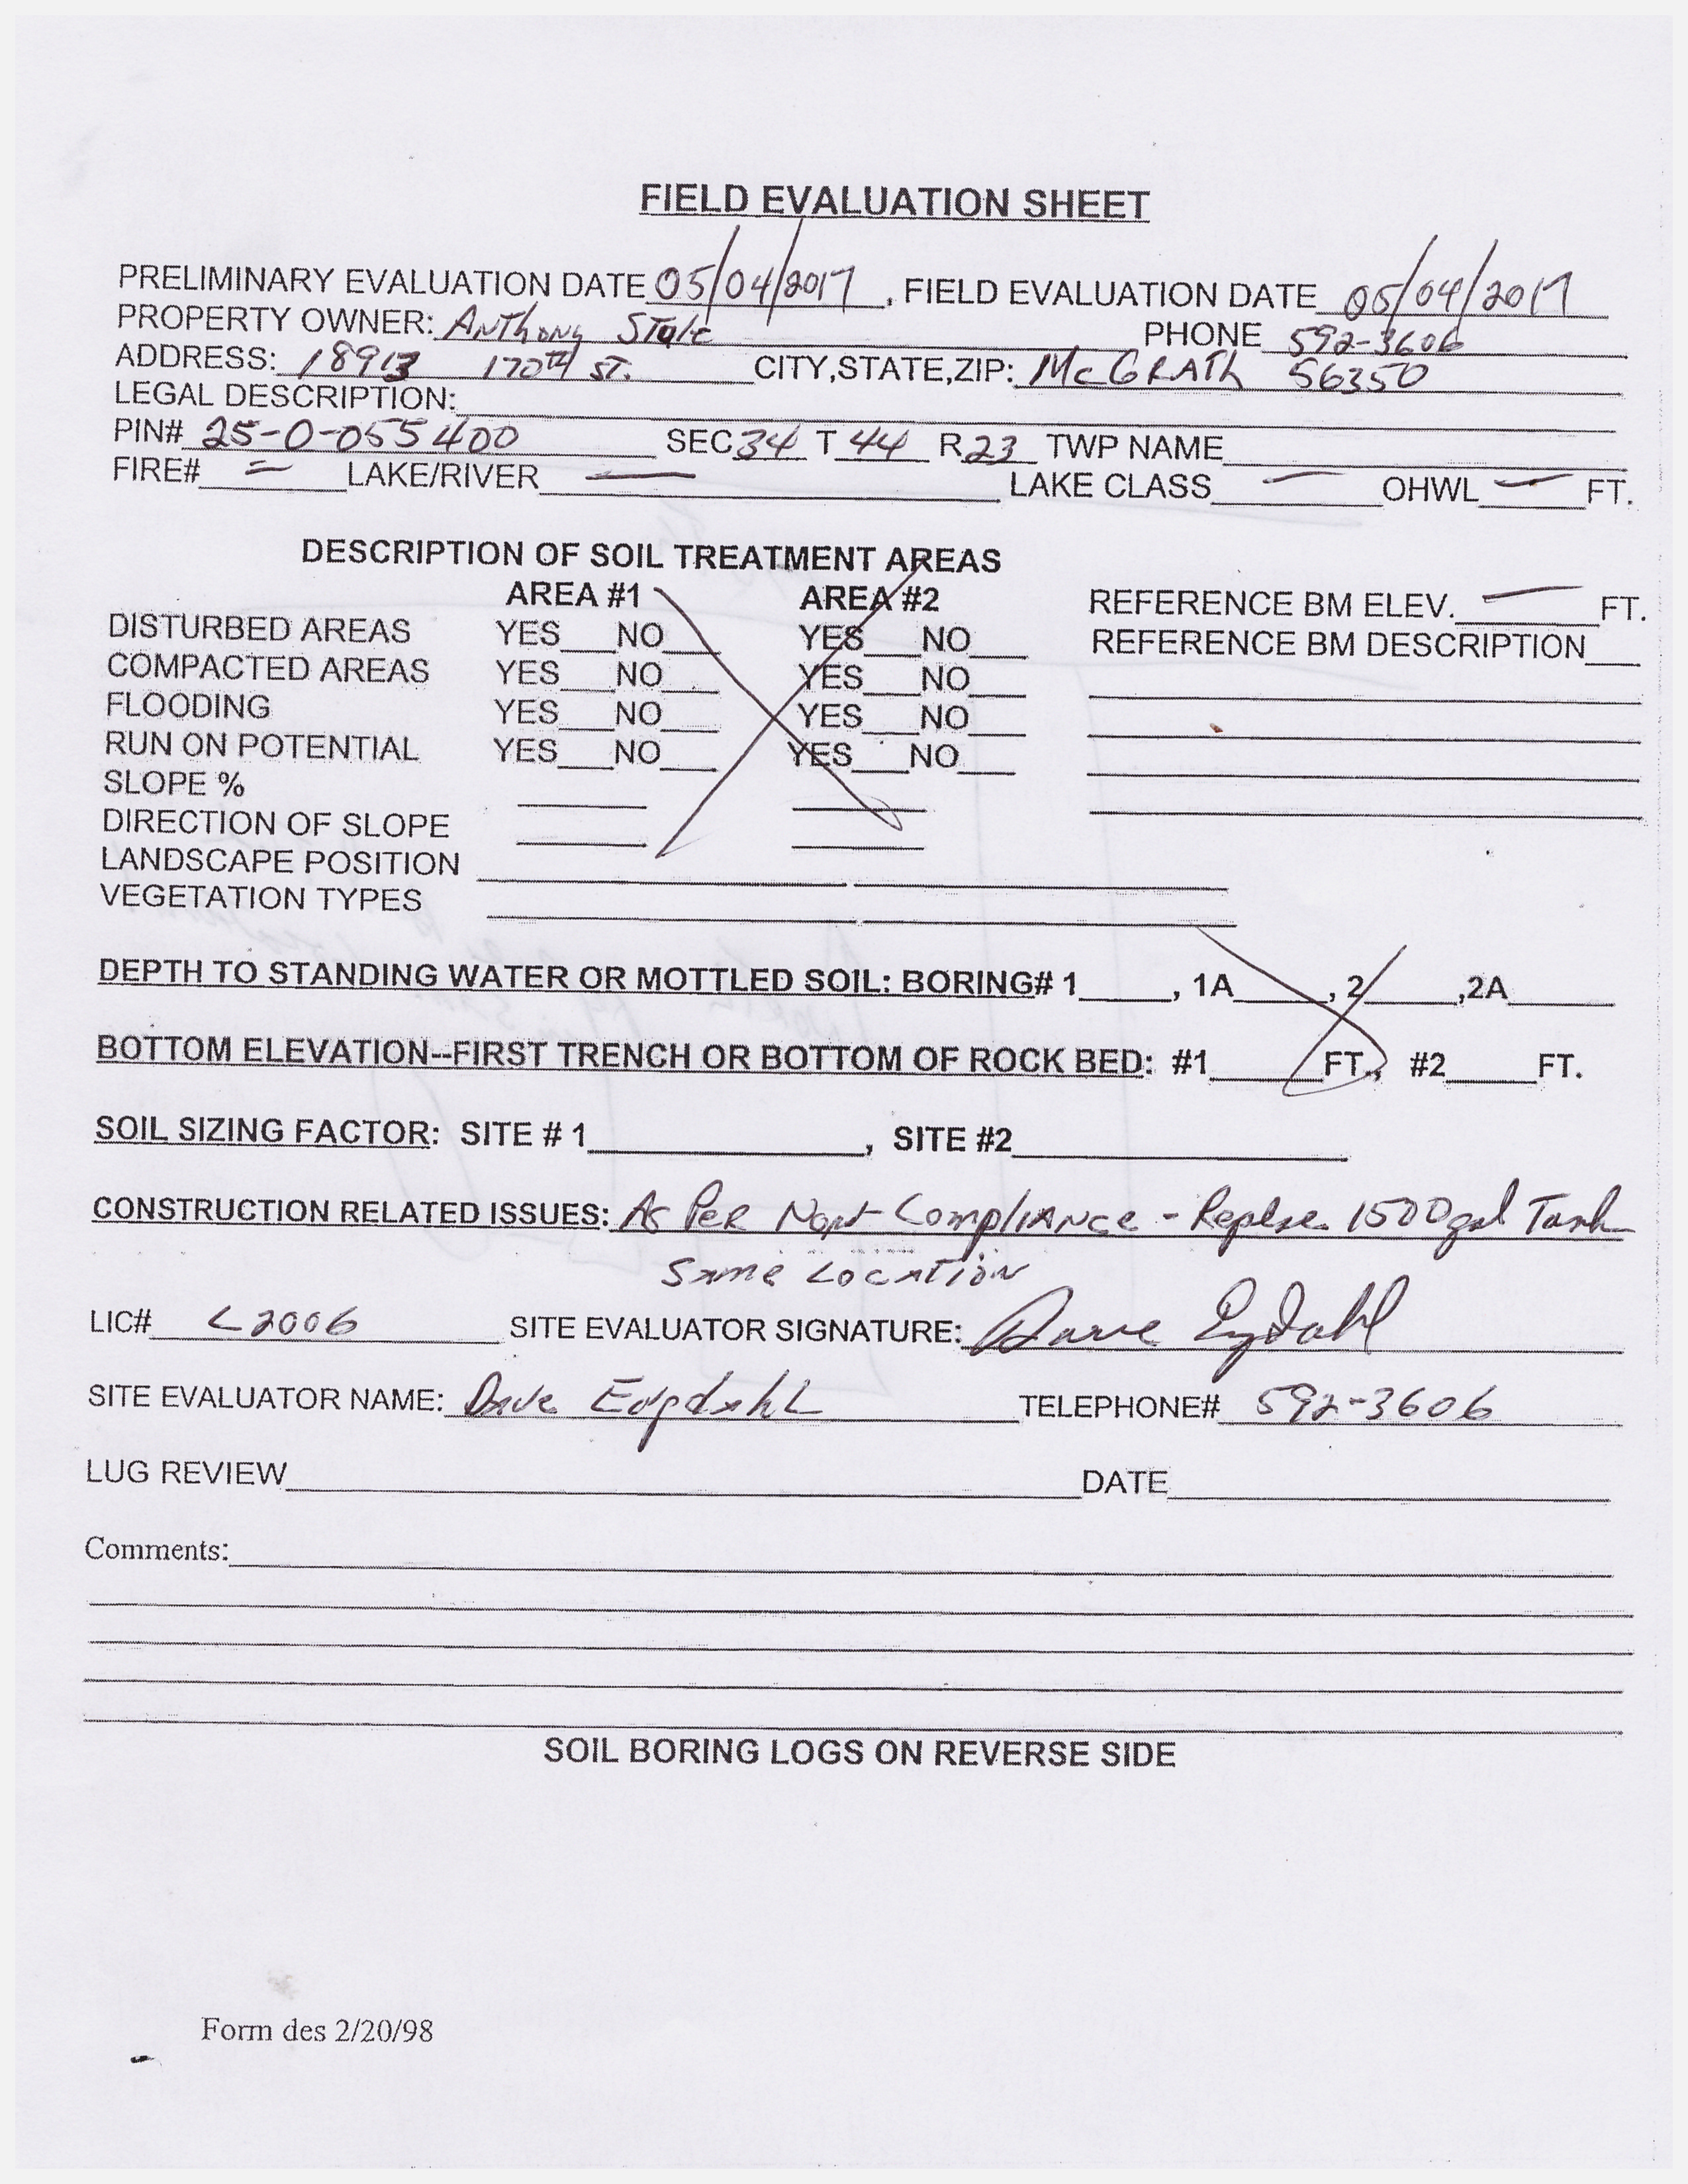 FIELD EVALUATION SHEET
PRELIMINARY EVALUATION DATE 05/04/2017, FIELD EVALUATION DATE 05/04/2017
PROPERTY OWNER: Anthony PHONE 592-3606
ADDRESS: 18913 170th ST. CITY,STATE,ZIP: McGRATH 56350
LEGAL DESCRIPTION:
PIN# 25-0-055400 SEC 34 T 44 R 23 TWP NAME
FIRE# = LAKE/RIVER — LAKE CLASS — OHWL — FT.
DESCRIPTION OF SOIL TREATMENT AREAS
AREA #1 AREA #2 REFERENCE BM ELEV. — FT.
DISTURBED AREAS YES___NO___ YES___NO___ REFERENCE BM DESCRIPTION___
COMPACTED AREAS YES___NO___ YES___NO___
FLOODING YES___NO___ YES___NO___
RUN ON POTENTIAL YES___NO___ YES___NO___
SLOPE %
DIRECTION OF SLOPE
LANDSCAPE POSITION
VEGETATION TYPES
DEPTH TO STANDING WATER OR MOTTLED SOIL: BORING# 1_____, 1A_____, 2_____,2A_____
BOTTOM ELEVATION--FIRST TRENCH OR BOTTOM OF ROCK BED: #1_____FT., #2_____FT.
SOIL SIZING FACTOR: SITE # 1__________, SITE #2__________
CONSTRUCTION RELATED ISSUES: As Per Compliance - 1500 gal Tank
Same Location
LIC# L2006 SITE EVALUATOR SIGNATURE: Dave
SITE EVALUATOR NAME: Dave TELEPHONE# 592-3606
LUG REVIEW DATE
Comments:
SOIL BORING LOGS ON REVERSE SIDE
Form des 2/20/98